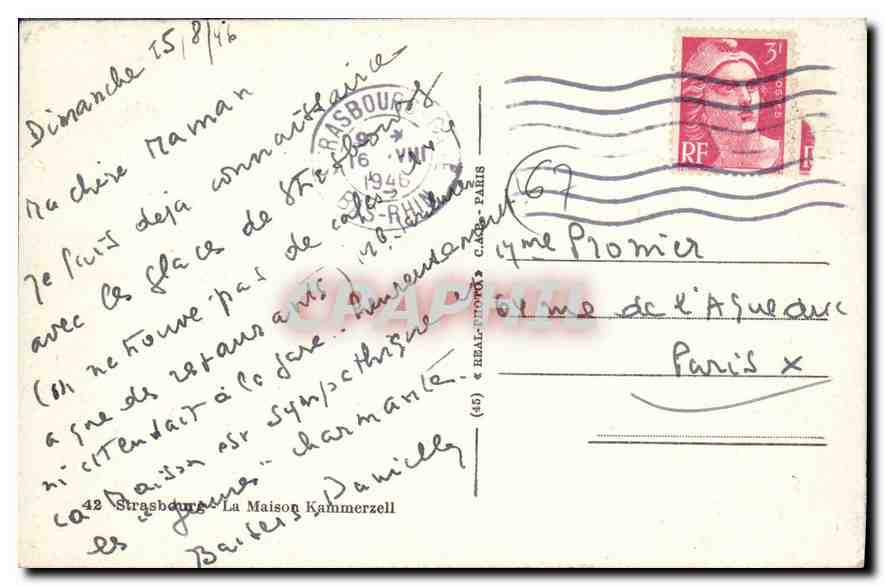 Dimanche 15/8/46
Ma chère Maman
Je fais déjà connaissance
avec les glaces de Strasbourg
(on ne trouve pas de cafés
que des restaurants)
m'attendait à la gare - heureusement
La Maison est sympathique et
les "jeunes" charmante -
Baisers Danielle
42 Strasbourg - La Maison Kammerzell
(45) « REAL-PHOTO » C.A.P. - PARIS
STRASBOURG
16 VIII
1946
BAS-RHIN
3F
POSTES
RF
67
Mme Promier
61 rue de l'Aqueduc
Paris X
CPAPHIL